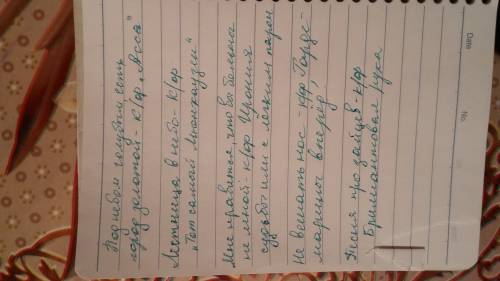 Под небом голубым есть
город золотой - к/ф „Асса"
Лестница в небо - к/ф
„Тот самый Мюнхаузен"
Мне нравится, что вы больны
не мной - к/ф Ирония
судьбы или с легким паром
Не вешать нос - к/ф, Гарде-
марины вперёд
Песня про зайцев - к/ф
Бриллиантовая рука
Date
No.